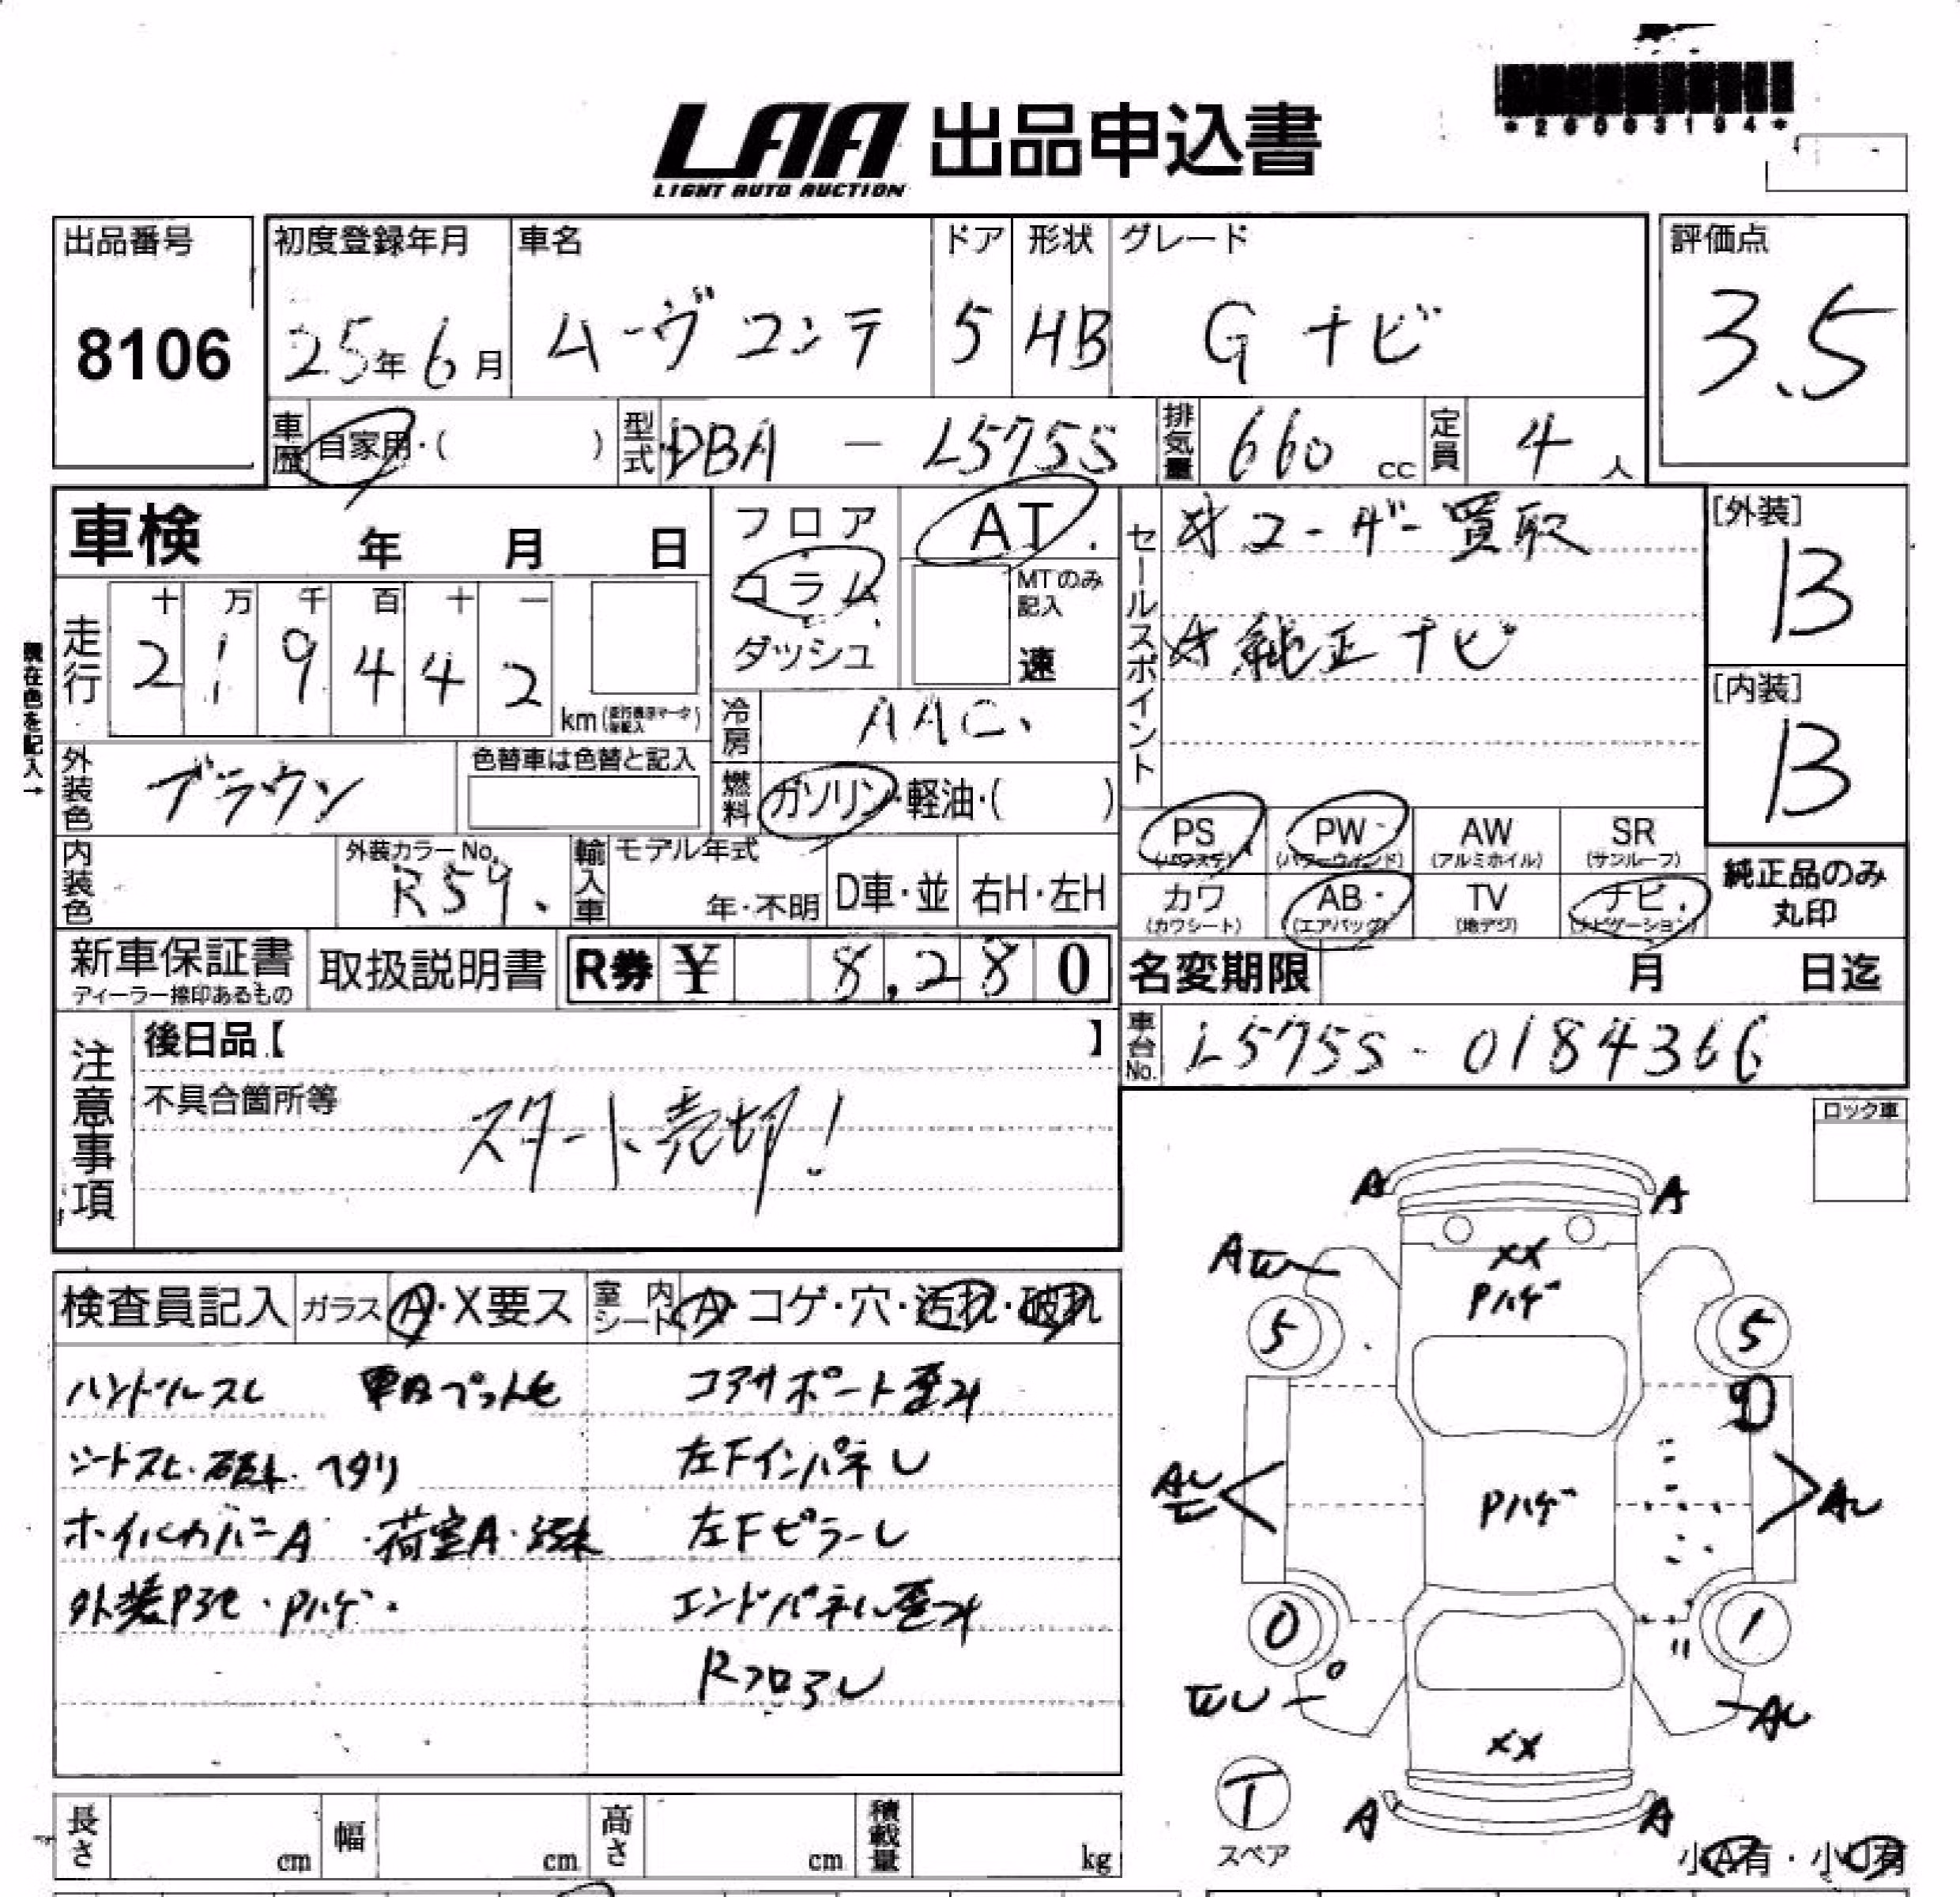 *26063194*
LAA 出品申込書
LIGHT AUTO AUCTION
出品番号 初度登録年月 車名 ドア 形状 グレード 評価点
8106 25年6月 ムーヴコンテ 5 HB G ナビ 3.5
車歴 自家用・( ) 型式 DBA - L575S 排気量 660 cc 定員 4 人
車検 年 月 日 フロア AT セールスポイント ★ユーザー買取 [外装]
B
コラム MTのみ記入
十 万 千 百 十 一
走行 2 1 9 4 4 2 km ダッシュ 速 ★純正ナビ [内装]
B
現在色を記入→
冷房 AAC
外装色 ブラウン 色替車は色替と記入 燃料 ガソリン・軽油・( )
PS (パワステ) PW (パワーウィンド) AW (アルミホイル) SR (サンルーフ)
内装色 外装カラーNo. R59 輸入車 モデル年式 年・不明 D車・並 右H・左H
カワ (カワシート) AB (エアバッグ) TV (地デジ) ナビ (ナビゲーション) 純正品のみ丸印
新車保証書 ディーラー捺印あるもの 取扱説明書 R券 ¥ 8,280 名変期限 月 日迄
注意事項 後日品【 】 車台No. L575S-0184366
不具合箇所等
スタート売切!
ロック車
検査員記入 ガラス A・X要ス 室内シート A・コゲ・穴・汚れ・破れ
ハンドルスレ コアサポート歪み
シートスレ・破れ・ヘタリ 左Fインパネし
ホイルカバーA・荷室A・汚れ 左Fピラーし
外装 ・Pハゲ・ エンドパネル歪み
Rフロアし
A A
A
XX
Pハゲ
5 5
D
AU Pハゲ AU
0 1
AU
XX
T
スペア
A A
小A有・小U有
長さ cm 幅 cm 高さ cm 積載量 kg